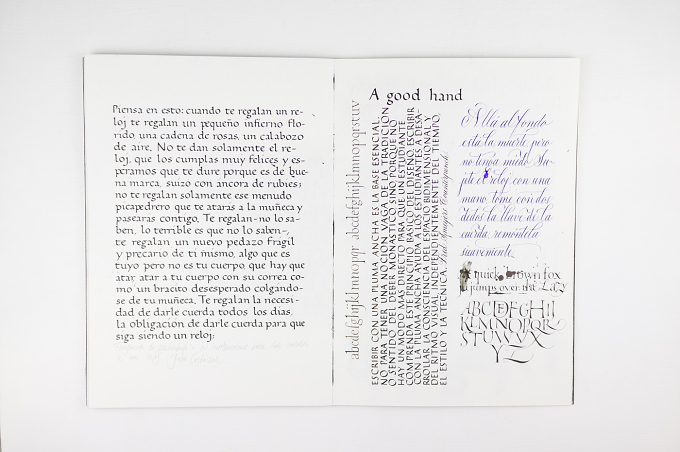 Piensa en esto: cuando te regalan un re-
loj te regalan un pequeño infierno flo-
rido, una cadena de rosas, un calabozo
de aire. No te dan solamente el re-
loj, que los cumplas muy felices y es-
peramos que te dure porque es de bue-
na marca, suizo con áncora de rubíes;
no te regalan solamente ese menudo
picapedrero que te atarás a la muñeca y
pasearás contigo. Te regalan-no lo sa-
ben, lo terrible es que no lo saben-,
te regalan un nuevo pedazo frágil
y precario de ti mismo, algo que es
tuyo pero no es tu cuerpo, que hay que
atar atar a tu cuerpo con su correa co-
mo un bracito desesperado colgándo-
se de tu muñeca. Te regalan la necesi-
dad de darle cuerda todos los días,
la obligación de darle cuerda para que
siga siendo un reloj:
A good hand
abcdefghijklmnopqr abcdefghijklmnopqrstuv
ESCRIBIR CON UNA PLUMA ANCHA ES LA BASE ESENCIAL,
NO PARA TENER UNA NOCIÓN VAGA DE LA TRADICIÓN
O SENTIDO DEL DEBER MONÁSTICO SINO PORQUE NO
HAY UN MODO MÁS DIRECTO PARA QUE UN ESTUDIANTE
COMPRENDA ESTE PRINCIPIO BÁSICO DEL DISEÑO. ESCRIBIR
CON LA PLUMA ANCHA AYUDA A LOS ESTUDIANTES A DESA-
RROLLAR LA CONSCIENCIA DEL ESPACIO BIDIMENSIONAL Y
DEL RITMO VISUAL INDEPENDIENTEMENTE DEL TIEMPO,
EL ESTILO Y LA TÉCNICA.
Allá al fondo
está la muerte, pero
no tenga miedo. Su-
jete el reloj con una
mano, tome con dos
dedos la llave de la
cuerda, remóntelo
suavemente.
quick brown fox
jumps over the LAZY
ABCDEFGHIJ
KLMNOPQR
STUWVX
YZ